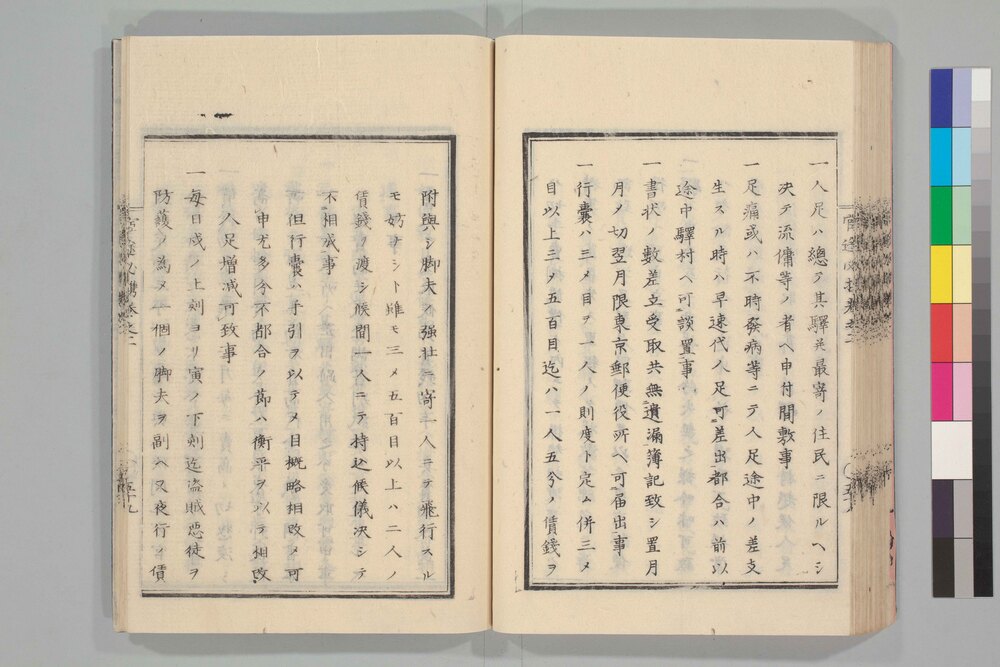 一人足ハ總テ其驛并最寄ノ住民ニ限ルヘシ
決テ流傭等ノ者ヘ申付間敷事
一足痛或ハ不時發病等ニテ人足途中ノ差支
生スル時ハ早速代ノ人足可差出都合ハ前以
途中驛村ヘ可談置事
一書状ノ數差立受取共無遺漏簿記致シ置月
月ノ切翌月限東京郵便役所ヘ可届出事
一行嚢ハ三メ目ヲ一人ノ則度ト定ム併三メ
目以上三メ五百目迄ハ一人五分ノ賃錢ヲ
附與シ脚夫ノ強壮ニ寄一人ニテ飛行スル
モ妨ナシト雖モ三メ五百目以上ハ二人ノ
賃錢ヲ渡シ候間一人ニテ持込候儀決シテ
不相成事
但行嚢ハ手引ヲ以テメ目概略相改メ可
申尤多分不都合ノ節ハ衡平ヲ以テ相改
人足増減可致事
一毎日戌ノ上刻ヨリ寅ノ下刻迄盗賊惡徒ヲ
防護ノ為メ一個ノ脚夫ヲ副ヘ又夜行ノ賃